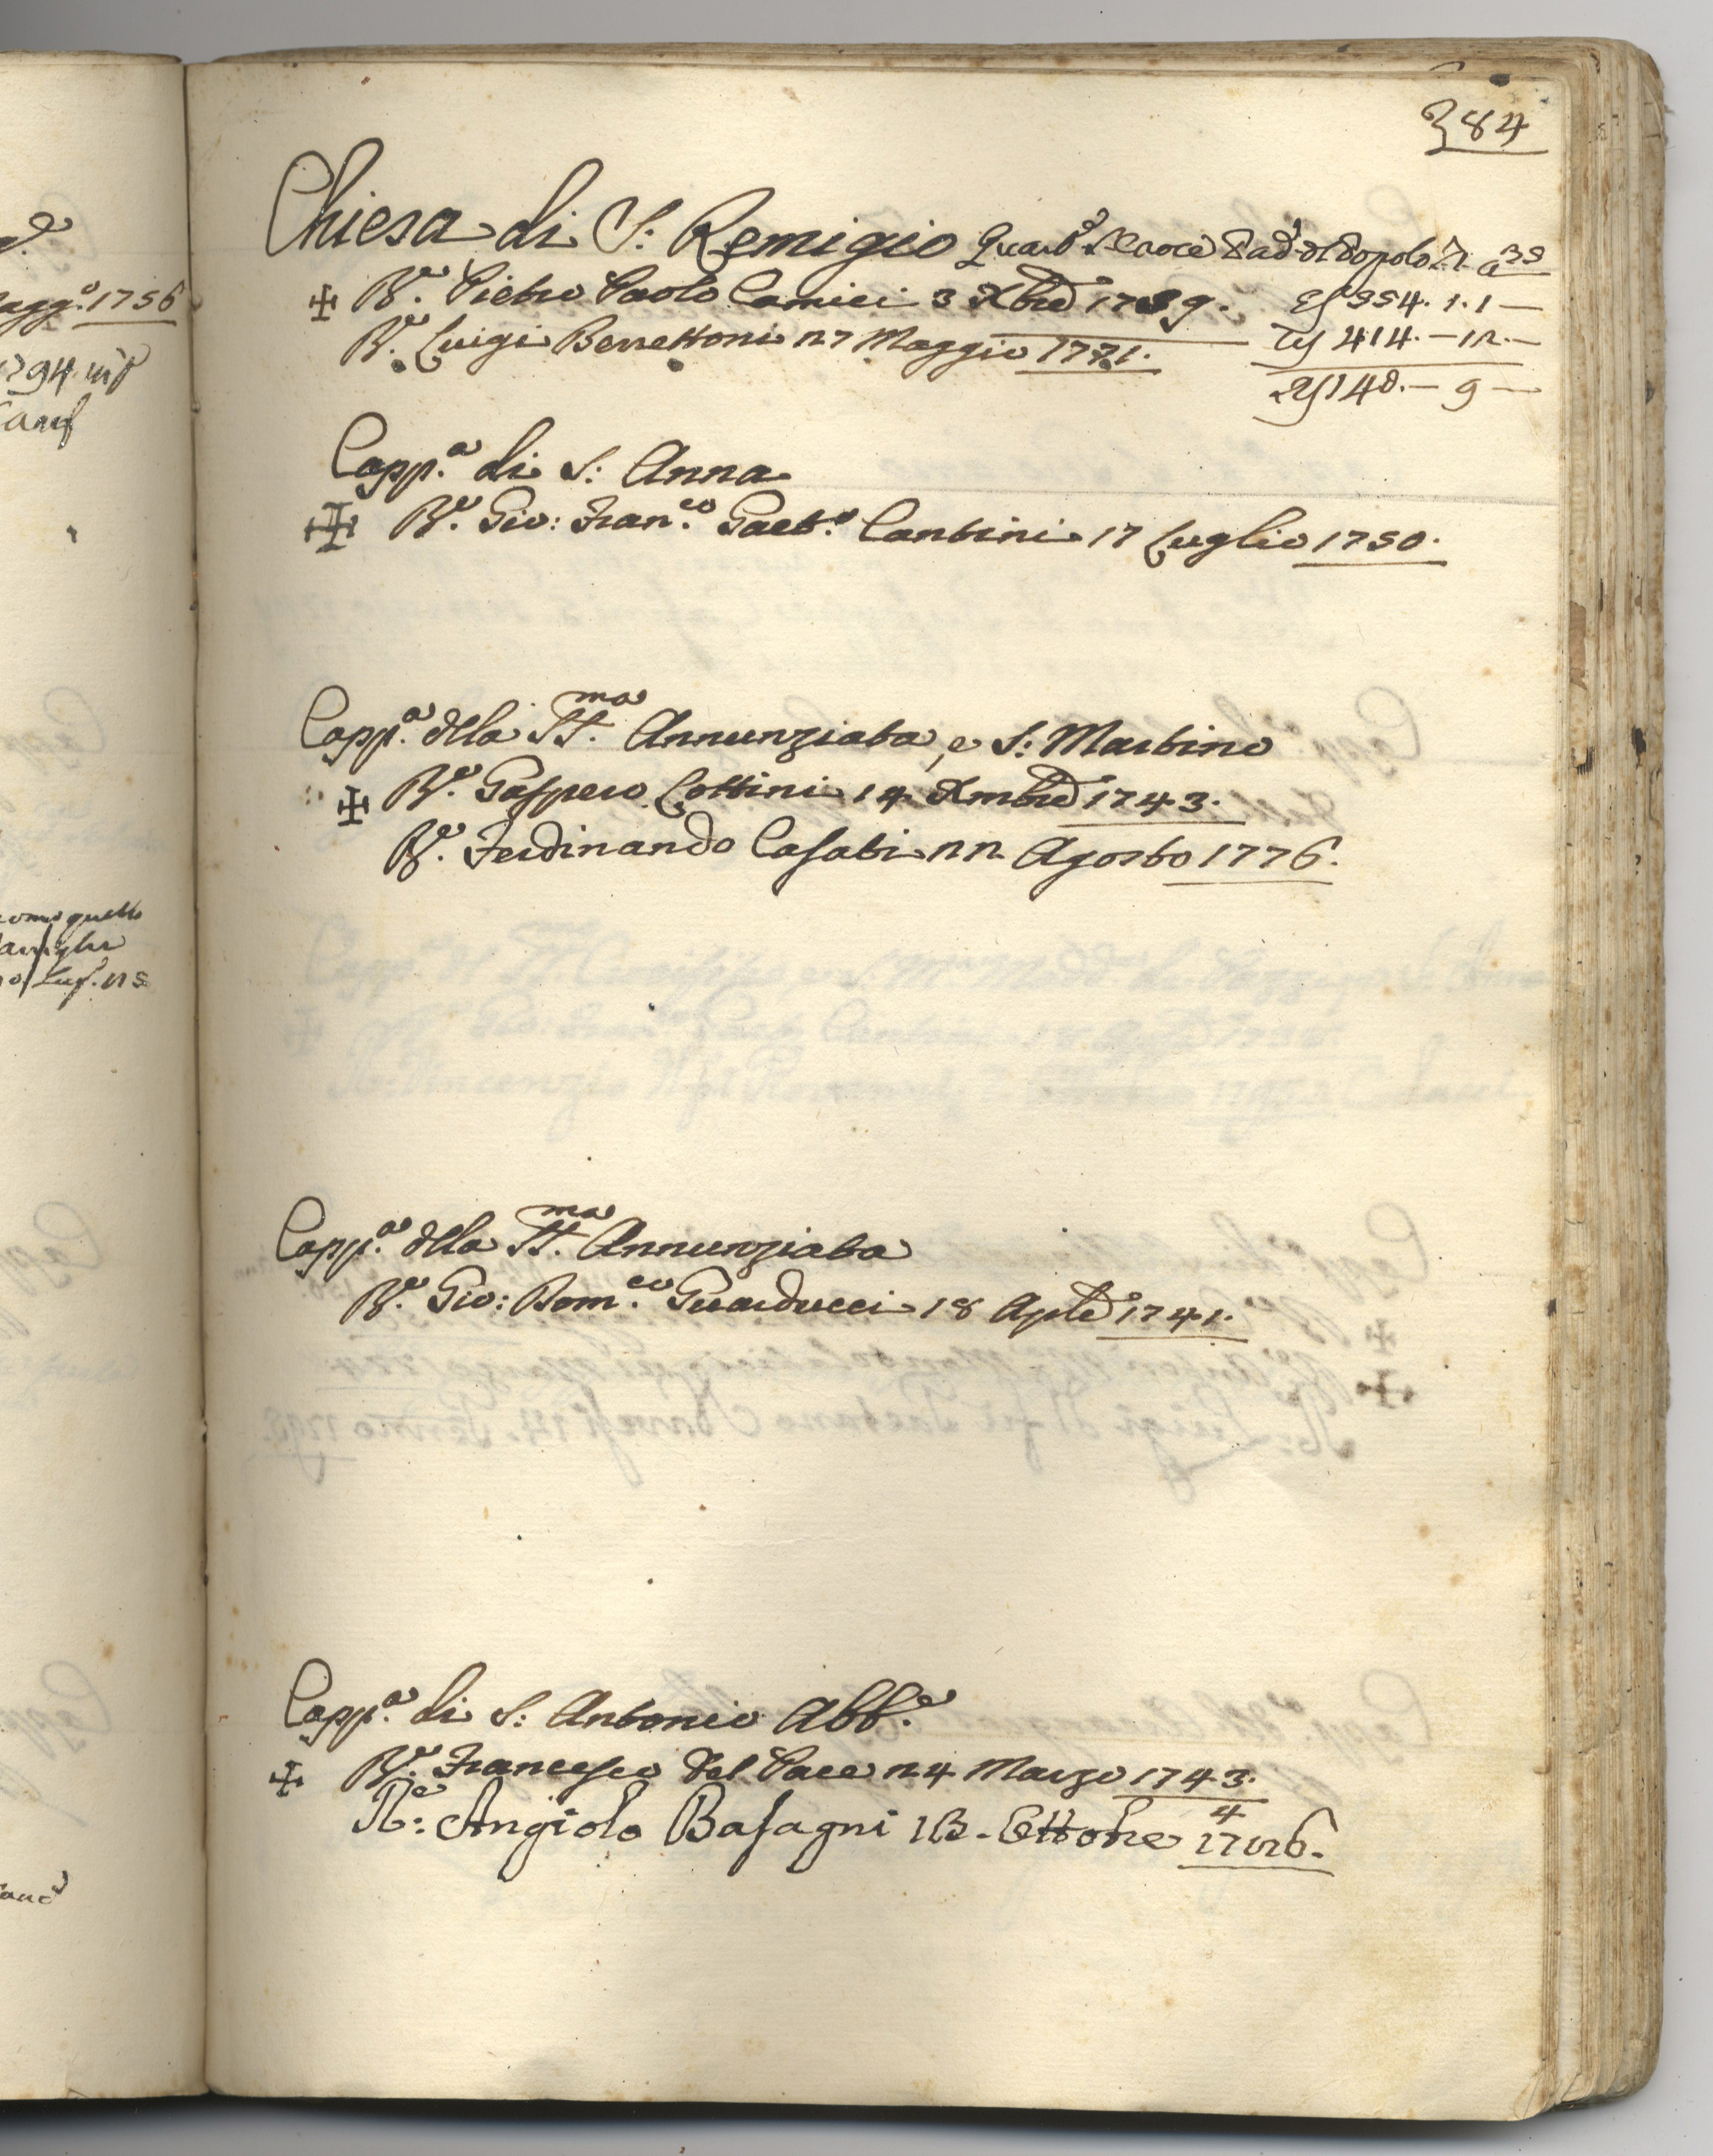 384
Chiesa di S: Remigio Quart.e S. Croce Pad.i di Popolo
✠ R.e Pietro Paolo Camici 3 Xbre 1739. 354. 1. 1 —
R.e Luigi Berrettoni 27 Maggio 1771. 414. — 12. —
148. — 9 —
Capp.a di S: Anna
✠ R.e Gio: Fran.co Gaet.o Cantini 17 Luglio 1750.
Capp.a della SS.ma Annunziata, e S: Martino
✠ R.e Gaspero Lottini 14 Xmbre 1743.
R.e Ferdinando Casati 22 Agosto 1776.
Capp.a della SS.ma Annunziata
R.e Gio: Dom.co Guarducci 18 Aple 1741.
Capp.a di S: Antonio Abb.e
✠ R.e Francesco del Pace 24 Marzo 1743.
4
R.e: Angiolo Basagni Ettobre
agg.o 1756
1794